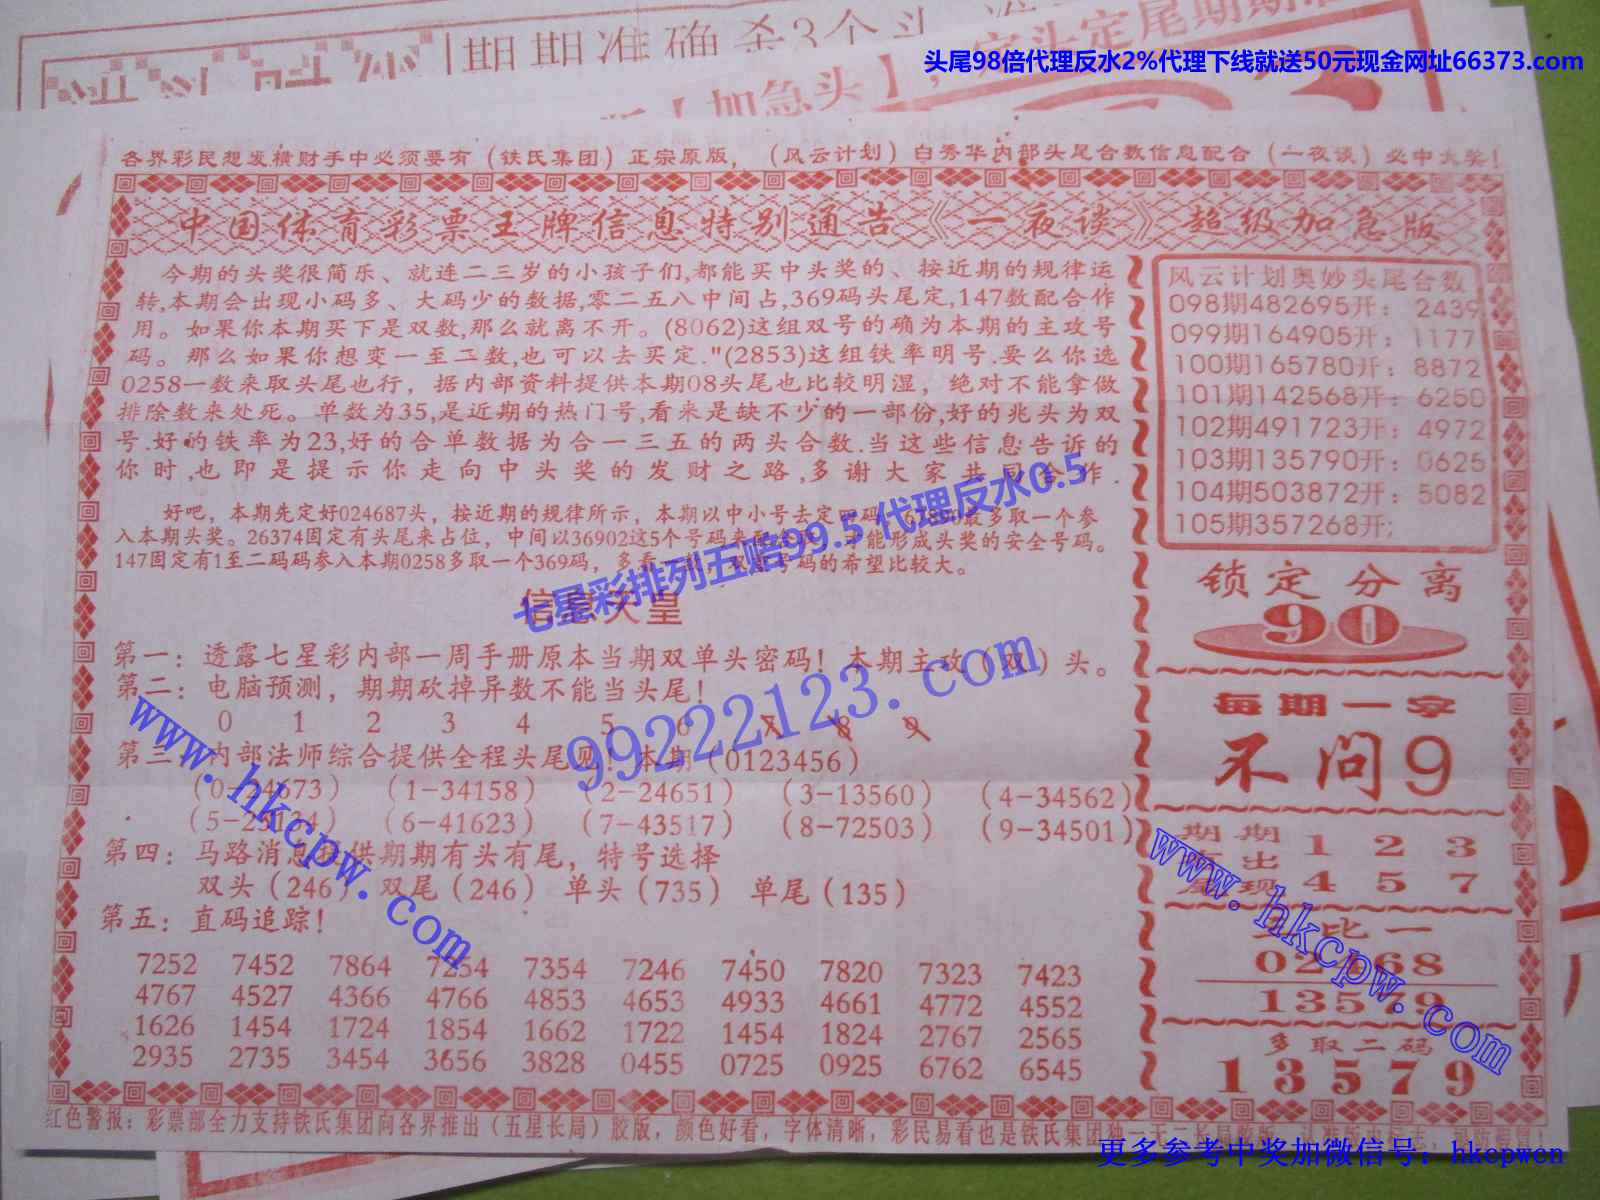 期期准确杀3个头
头尾98倍代理反水2%代理下线就送50元现金网址66373.com
【加急头】,定头定尾期期
各界彩民想发横财手中必须要有（铁氏集团）正宗原版，（风云计划）白秀华内部头尾合数信息配合（一夜谈）必中大奖！
中国体育彩票王牌信息特别通告《一夜谈》超级加急版
今期的头奖很简乐、就连二三岁的小孩子们,都能买中头奖的、按近期的规律运
转,本期会出现小码多、大码少的数据,零二五八中间占,369码头尾定,147数配合作
用。如果你本期买下是双数,那么就离不开。(8062)这组双号的确为本期的主攻号
码。那么如果你想变一至二数,也可以去买定."(2853)这组铁率明号.要么你选
0258一数来取头尾也行，据内部资料提供本期08头尾也比较明湿，绝对不能拿做
排除数来处死。单数为35,是近期的热门号,看来是缺不少的一部份,好的兆头为双
号.好的铁率为23,好的合单数据为合一三五的两头合数.当这些信息告诉的
你时,也即是提示你走向中头奖的发财之路,多谢大家共同合作.
好吧，本期先定好024687头，按近期的规律所示，本期以中小号去定四码，67890最多取一个参
入本期头奖。26374固定有头尾来占位，中间以36902这5个号码来 才能形成头奖的安全号码。
147固定有1至二码码参入本期0258多取一个369码，多看 号码的希望比较大。
七星彩排列五赔99.5 代理反水0.5
信息天皇
第一：透露七星彩内部一周手册原本当期双单头密码！本期主攻（双）头。
第二：电脑预测，期期砍掉异数不能当头尾！
0 1 2 3 4 5 6 7 8 9
99222123.com
第三：内部法师综合提供全程头尾见！本期（0123456）
（0-24673）（1-34158）（2-24651）（3-13560）（4-34562）
（5-25134）（6-41623）（7-43517）（8-72503）（9-34501）
第四：马路消息提供期期有头有尾，特号选择
双头（246）双尾（246）单头（735）单尾（135）
第五：直码追踪！
7252 7452 7864 7254 7354 7246 7450 7820 7323 7423
4767 4527 4366 4766 4853 4653 4933 4661 4772 4552
1626 1454 1724 1854 1662 1722 1454 1824 2767 2565
2935 2735 3454 3656 3828 0455 0725 0925 6762 6545
www.hkcpw.com
风云计划奥妙头尾合数
098期482695开：2439
099期164905开：1177
100期165780开：8872
101期142568开：6250
102期491723开：4972
103期135790开：0625
104期503872开：5082
105期357268开;
锁定分离
90
每期一字
不问9
期期 1 2 3
出
现 4 5 7
比一
02468
13579
多取二码
13579
www.hkcpw.com
红色警报：彩票部全力支持铁氏集团向各界推出（五星长局）胶版，颜色好看，字体清晰，彩民易看也是铁氏集团独一无二长局胶版
更多参考中奖加微信号：hkcpwcn